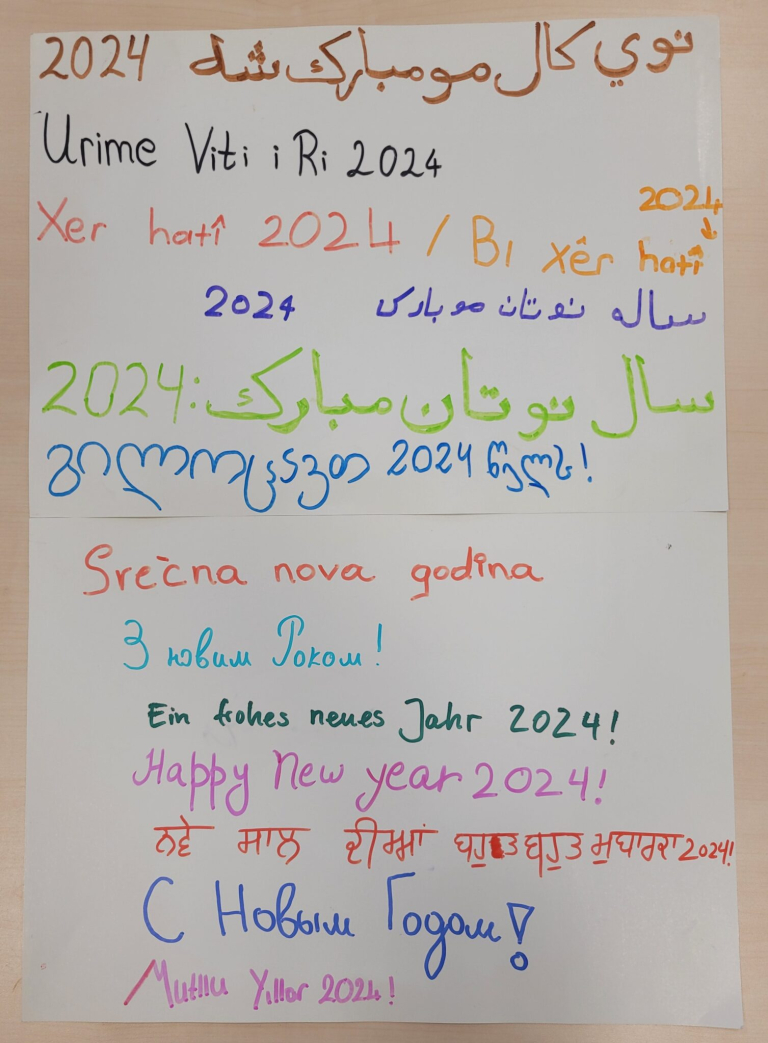 نوي کال مو مبارک شه 2024
Urime Viti i Ri 2024
Xer hatî 2024 / Bi xêr hatî 2024
ساله نو تان مو بارک 2024
سال نو تان مبارک: 2024
გილოცავთ 2024 წელს!
Srečna nova godina
З новим Роком!
Ein frohes neues Jahr 2024!
Happy New year 2024!
ਨਵੇ ਸਾਲ ਦੀਆਂ ਬਹੁਤ ਬਹੁਤ ਮੁਬਾਰਕਾ 2024!
С Новым Годом!
Mutlu Yıllar 2024!